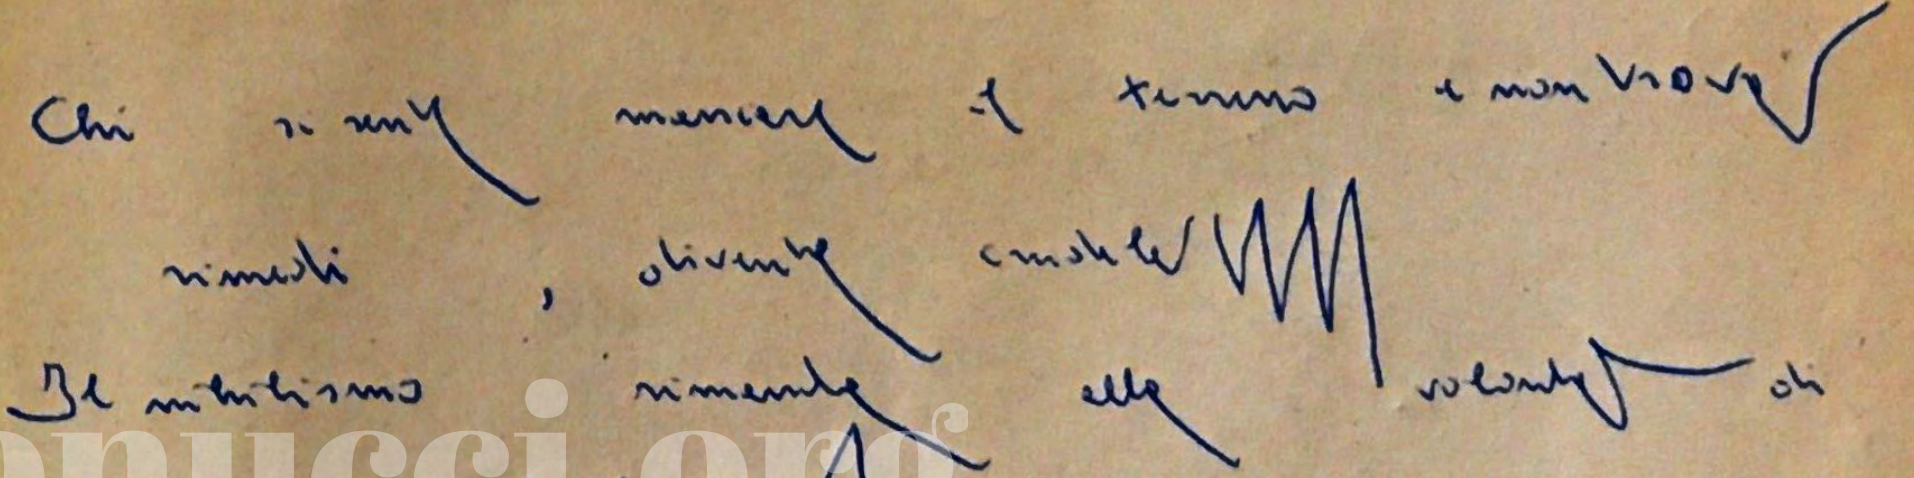 Chi si sente mancare il terreno e non trova
rimedi, diventa crudele
Il nihilismo rimanda alla volontà di
onucci.org